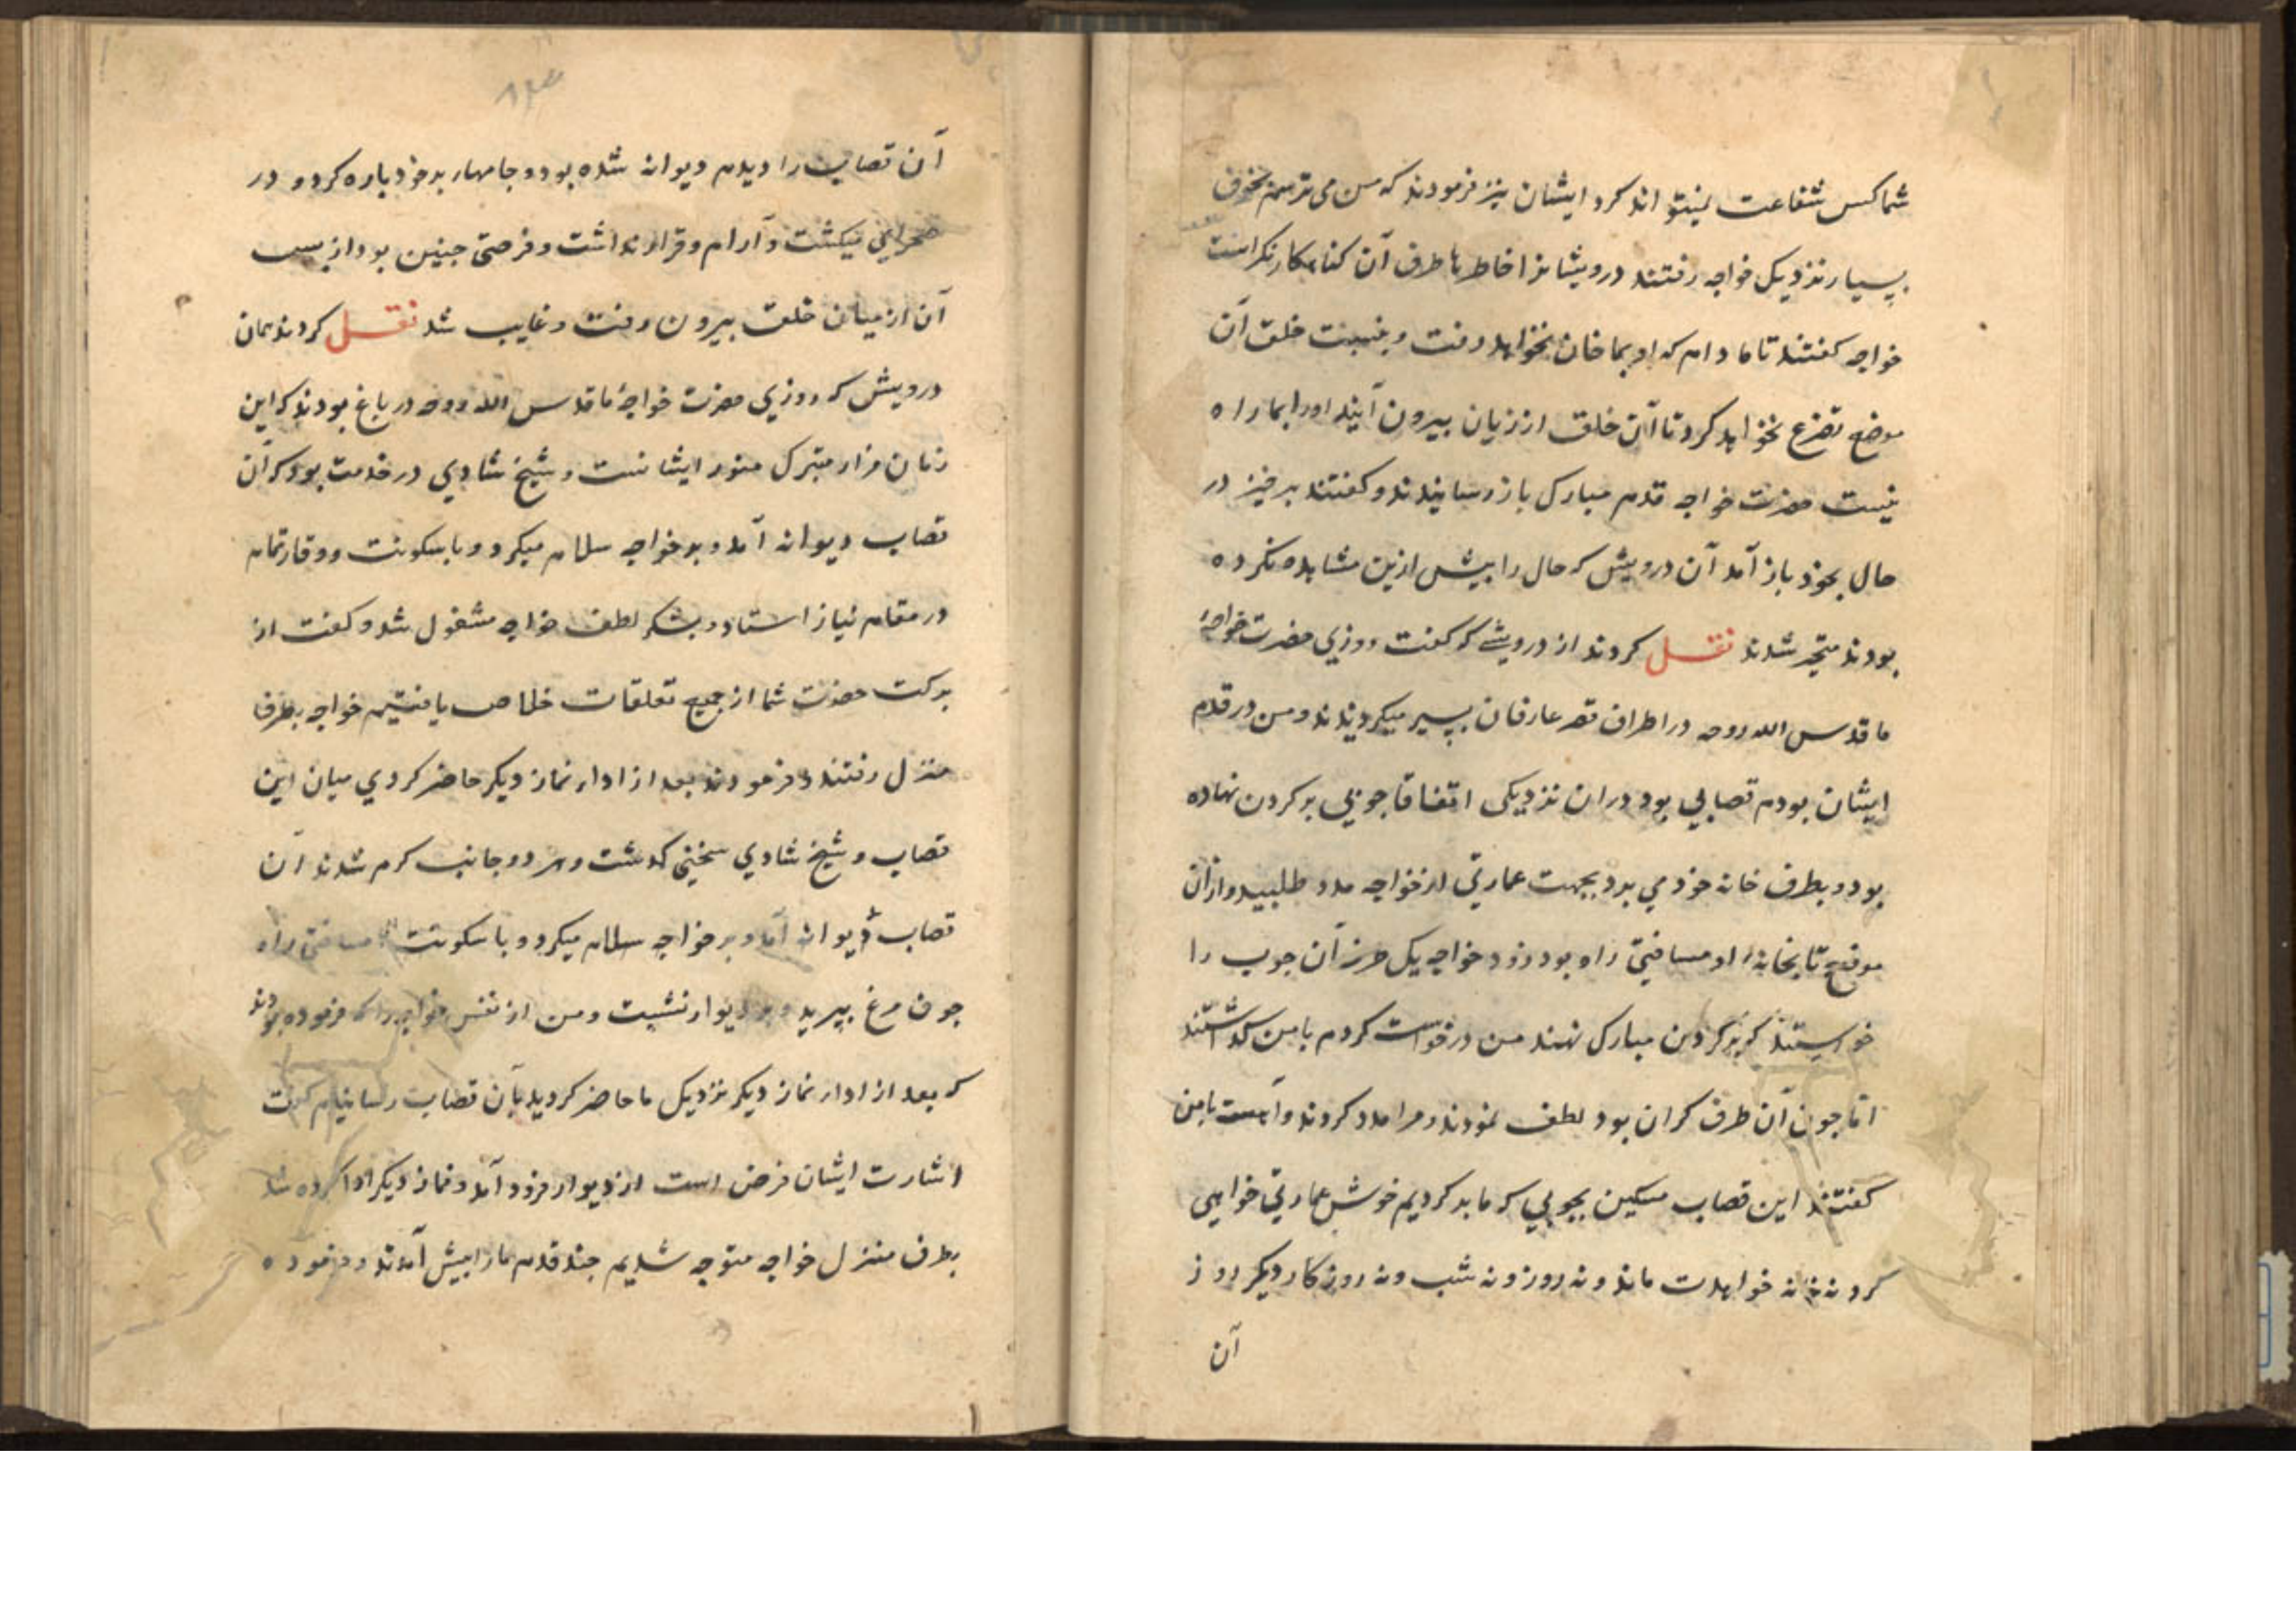 شما کس شفاعت نمیتواند کرد ایشان نیز فرمودند که من می ترسم بخوف
بسیار نزدیک خواجه رفتند درویشانرا خاطر با طرف آن کناهکار نکراست
خواجه کفتند تا مادام که او بما خان نخواهد رفت و بنسبت خلق آن
موضع تضرع نخواهد کرد تا آن خلق از زیان بیرون آیند او را بما راه
نیست حضرت خواجه قدم مبارک باز رسانیدند و کفتند برخیز در
حال بخود باز آمد آن درویش که حال را پیش ازین مشاهده نکرده
بودند متحیر شدند نقل کردند از درویشے که کفت روزی حضرت خواجهٔ
ما قدس الله روحه در اطراف قصر عارفان بسیر میکردیدند و من در قدم
ایشان بودم قصابی بود دران نزدیکی اتفاقا جوبی بر کردن نهاده
بود و بطرف خانه خود می برد بجهت عمارتی از خواجه مدد طلبید و ازان
موضع تا بخانهٔ او مسافتی راه بود زود خواجه یک طرف آن جوب را
خواستند که بر کردن مبارک نهند من درخواست کردم با من کذاشتند
اما جون آن طرف کران بود لطف نمودند و مرا مدد کردند و آهسته با من
کفتند این قصاب مسکین بجوبی که ما بر کردیم خوش عمارتی خواهی
کرد نه خانه خواهدت ماند و نه روز و نه شب و نه روزکار دیکر روز
آن
آن قصاب را دیدم دیوانه شده بود و جامهاء بر خود باره کرد و در
صحرایی میکشت و آرام و قرار نداشت و فرصتی جنین بود از بس
آن از میان خلق بیرون رفت و غایب شد نقل کردند همان
درویش که روزی حضرت خواجهٔ ما قدس الله روحه در باغ بودند که این
زمان مزار متبرک منور ایشانست و شیخ شادی در خدمت بود که آن
قصاب دیوانه آمد و بر خواجه سلام میکرد و با سکونت و وقار تمام
در مقام نیاز استاد و بشکر لطف خواجه مشغول شد و کفت از
برکت حضرت شما از جمیع تعلقات خلاص یافتیم خواجه بطرف
منزل رفتند و فرمودند بعد از اداء نماز دیکر حاضر کردی میان این
قصاب و شیخ شادی سخنی کذشت و هر دو جانب کرم شدند آن
قصاب دیوانه آمد و بر خواجه سلام میکرد و با سکونت مسافتی راه
جون مرغ ببرید و بر دیوار نشست و من از نفس خواجه را که فرموده بودند
که بعد از اداء نماز دیکر نزدیک ما حاضر کردید بآن قصاب رسانیدم کفت
اشارت ایشان فرض است از دیوار فرود آمد و نماز دیکر ادا کرده شد
بطرف منزل خواجه متوجه شدیم جند قدم ما را پیش آمدند و فرموده